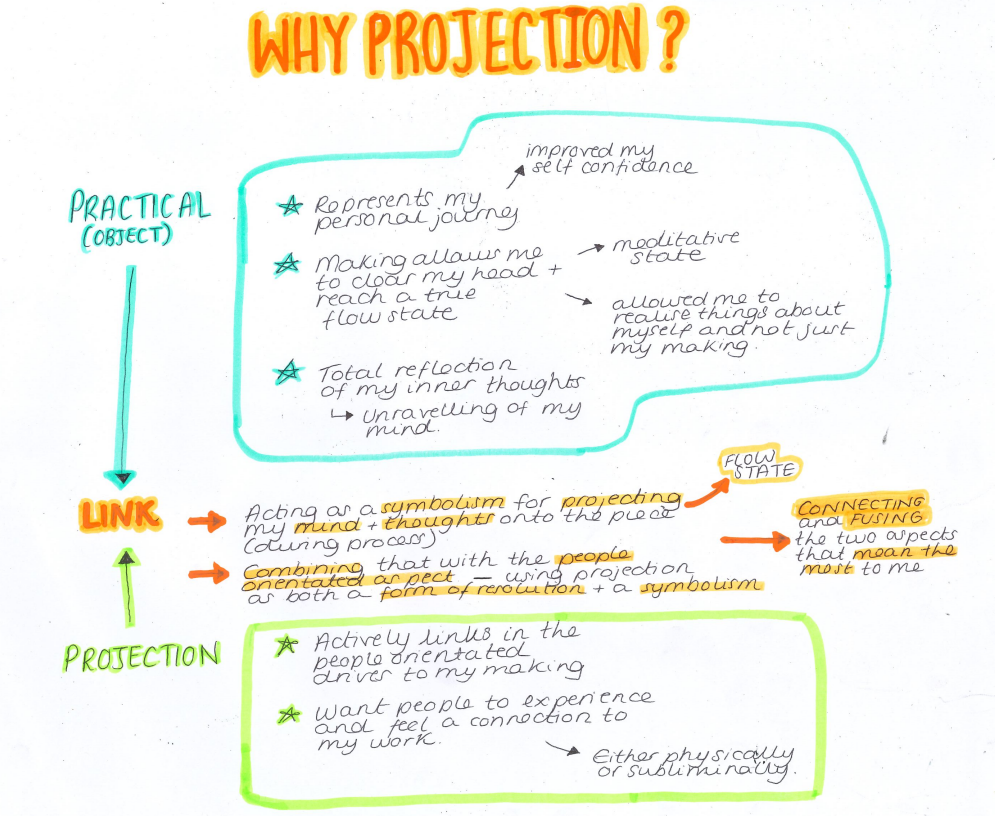 WHY PROJECTION?
improved my
self confidence
PRACTICAL
(OBJECT)
Represents my
personal journey
Making allows me
to clear my head +
reach a true
flow state
meditative
state
allowed me to
realise things about
myself and not just
my making.
Total reflection
of my inner thoughts
↳ unravelling of my
mind.
FLOW
STATE
LINK
Acting as a symbolism for projecting
my mind + thoughts onto the piece
(during process)
Combining that with the people
orientated aspect — using projection
as both a form of resolution + a symbolism
CONNECTING
and FUSING
the two aspects
that mean the
most to me
PROJECTION
Actively links in the
people orientated
driver to my making
Want people to experience
and feel a connection to
my work.
Either physically
or subliminally.